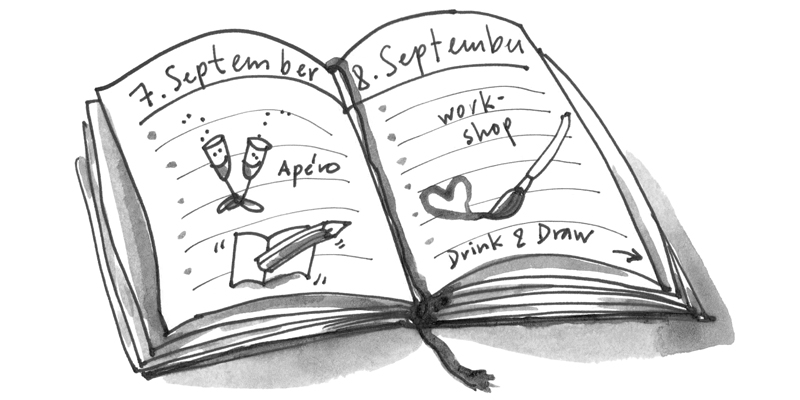 7. September
Apéro
8. September
work-
shop
Drink & Draw